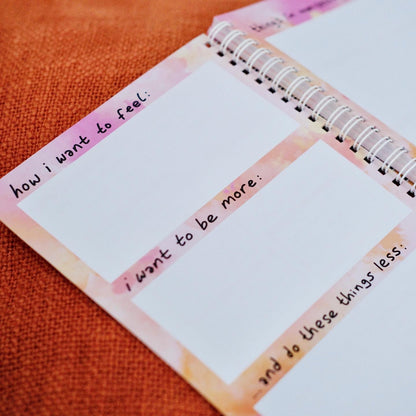 how i want to feel:
i want to be more:
...and do these things less:
things